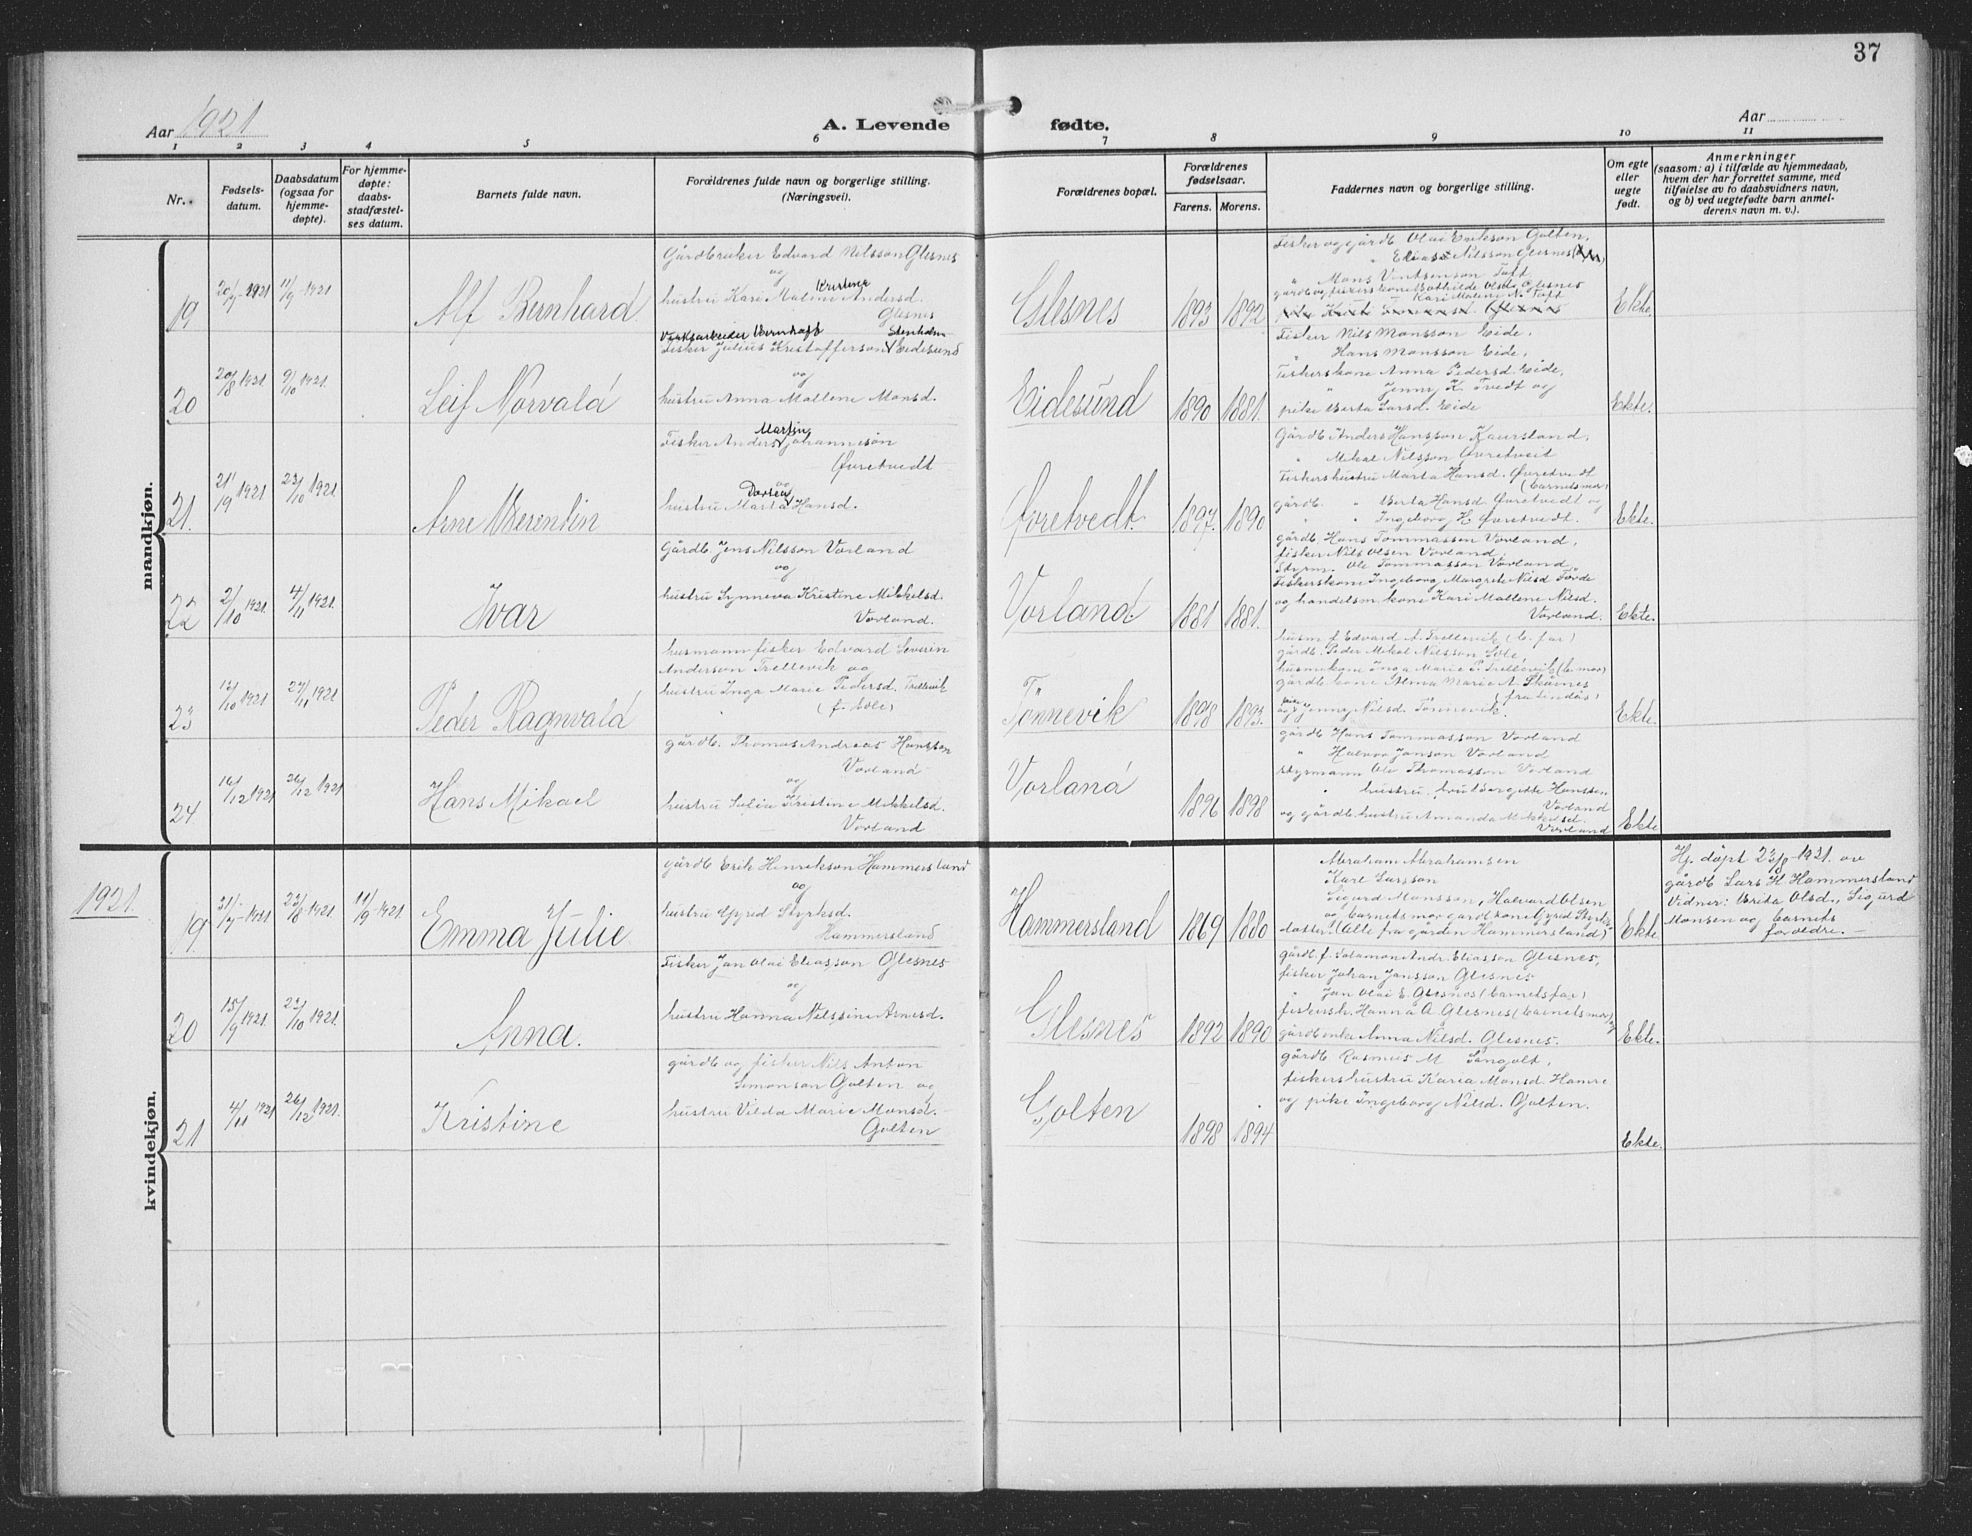 37
Aar 1921
A. Levende fødte.
Aar
1 2 3 4 5 6 7 8 9 10 11
Nr.
Fødsels-
datum.
Daabsdatum
(ogsaa for
hjemme-
døpte).
For hjemme-
døpte:
daabs-
stadfæstel-
ses datum.
Barnets fulde navn.
Forældrenes fulde navn og borgerlige stilling.
(Næringsvei).
Forældrenes bopæl.
Forældrenes
fødselsaar.
Farens. Morens.
Faddernes navn og borgerlige stilling.
Om egte
eller
uegte
født.
Anmerkninger
(saasom: a) i tilfælde av hjemmedaab,
hvem der har forrettet samme, med
tilføielse av to daabsvidners navn,
og b) ved uegtefødte barn anmel-
derens navn m. v.).
mandkjøn.
19
20/7-1921
11/9-1921
Alf Bernhard
Gårdbruker Edvard Nilsson Glesnes
og
Kristine
hustru Kari Malene Andersd.
Glesnes
Glesnes
1893 1892
Fisker og gårdb. Olai Erikson Golten,
" Elias Nilsson Glesnes
" Mons Vintsenson Toft
gårdb og fiskers kone Bothilde Olsd. Glesnes
Kari Malene N. Toft
Ekte.
20
20/8 1921
9/10 1921.
Leif Norvald
Verksarbeider Bernhoft Stenholm
Fisker Julius Kristofferson Eidesund
og
hustru Anna Mallene Monsd.
Eidesund
1890 1881.
Fisker Nils Monsson Eide.
" Hans Monsson Eide,
Fiskerskone Anna Pedersd. Eide,
" Jenny K. Tvedt og
pike Berta Larsd. Eide
Ekte.
21.
21/9 1921
23/10 1921.
Arne Berentin
Martin
Fisker Anders Johanneson
Øvretvedt
og
Dortea
hustru Marta Hansd.
Øvretvedt.
1897. 1890
Gårdb. Anders Hansson Kaursland,
" Mikal Nilsson Øvretveit
Fiskershustru Marta Hansd. Øvretvedt
(barnets mor)
gårdb. " Berta Hansd. Øvretvedt og
" " Ingeborg H. Øvretvedt.
Ekte.
22
2/10 1921.
4/11 1921.
Ivar
Gårdb. Jens Nilsson Vorland
og
hustru Synneva Kristine Mikkelsd.
Vorland.
Vorland.
1881 1881.
gårdb. Hans Tommasson Vorland,
fisker Nils Olsen Vorland,
Styrm. Ole Tommasson Vorland,
Fiskerskone Ingeborg Margrete Nilsd Torde
og handelsm. kone Kari Mallene Nilsd.
Vorland.
Ekte.
23
13/10 1921
27/11 1921
Peder Ragnvald
husmann fisker Edvard Severin
Anderson Trellevik og
hustru Inga Marie Pedersd. Trellevik
(f. Sole)
Tönnevik
1898 1893.
husm. f. Edvard A. Trellevik (b. far)
gårdb. Peder Mikal Nilsson Sole,
husm. kone Inga Marie P. Trellevik (b. mor)
gårdb. kone Alma Marie A. Skårnes
(fra Lindås)
og pike Jenny Nilsd. Tönnevik.
Ekte.
24
16/12 1921
26/12 1921
Hans Mikael
gårdb. Thomas Andreas Hansson
Vorland
og
hustru Sulia Kristine Mikkelsd.
Vorland
Vorland
1896 1898
gårdb Hans Tommasson Vorland
" Halvor Janson Vorland
styrmann Ole Thomasson Vorland
" hustru Hansson,
Vorland
og gårdb. hustru Amanda Mikkelsd.
Vorland
Ekte
1921.
kvindekjøn.
19
31/7-1921
23/8-1921.
11/9-1921
Emma Julie
gårdb Erik Henrikson Hammersland
og
hustru Gyrid Styrksd.
Hammersland
Hammersland
1869 1880
Abraham Abrahamsen
Karl Larsson
Sigurd Monsson, Halvard Olsen
og barnets mor gårdb kone Gyrid Styrks-
datter. (Alle fra gården Hammersland)
Ekte
Hj. döpt 23/8-1921. av
gårdb Lars H. Hammersland
Vidner: Brita Olsd., Sigurd
Monsen og barnets
forældre.
20
15/9 1921.
23/10 1921.
Anna.
Fisker Jan Olai Eliasson Glesnes
og
hustru Hanna Nilssine Arnesd.
Glesnes
1892 1890
gårdb. f. Salamon Andr. Eliasson Glesnes,
fisker Johan Jansson Glesnes
" Jan Olai E. Glesnes (barnets far)
fiskersk. Hanna A. Glesnes (barnets mor) og
gårdb enke Anna Nilsd. Glesnes.
Ekte.
21
4/11 1921
26/12 1921.
Kristine
gårdb og fisker Nils Anton
Simonson Golten og
hustru Vilda Marie Monsd.
Golten
Golten
1898 1894
gårdb Rasmus M. Sangolt,
fiskershustru Karia Monsd. Hamre
og pike Ingeborg Nilsd. Golten.
Ekte.